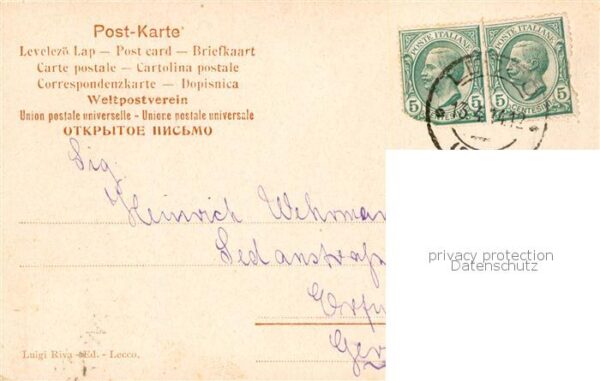 Post-Karte
Levelező Lap — Post card — Briefkaart
Carte postale — Cartolina postale
Correspondenzkarte — Dopisnica
Weltpostverein
Union postale universelle - Unione postale universale
ОТКРЫТОЕ ПИСЬМО
POSTE ITALIANE POSTE ITALIANE
5 5 5 CENTESIMI 5
Sig.
Heinrich Wehrman
Sedanstraß
Erfu
Ger
privacy protection
Datenschutz
Luigi Riva - Ed. - Lecco.